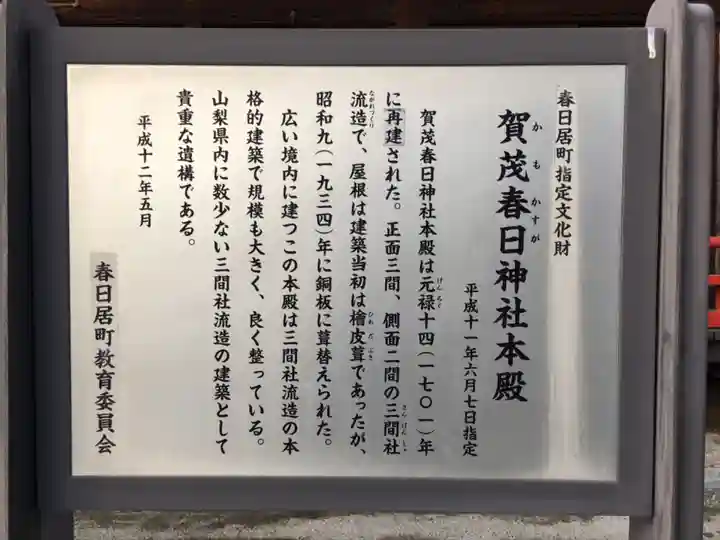 春日居町指定文化財
賀茂春日神社本殿
かもかすが
平成十一年六月七日指定
賀茂春日神社本殿は元禄十四(一七〇一)年
げんろく
に再建された。正面三間、側面二間の三間社
さんげんしゃ
流造で、屋根は建築当初は檜皮葺であったが、
ながれづくり
ひわだぶき
昭和九(一九三四)年に銅板に葺替えられた。
広い境内に建つこの本殿は三間社流造の本
格的建築で規模も大きく、良く整っている。
山梨県内に数少ない三間社流造の建築として
貴重な遺構である。
平成十二年五月
春日居町教育委員会